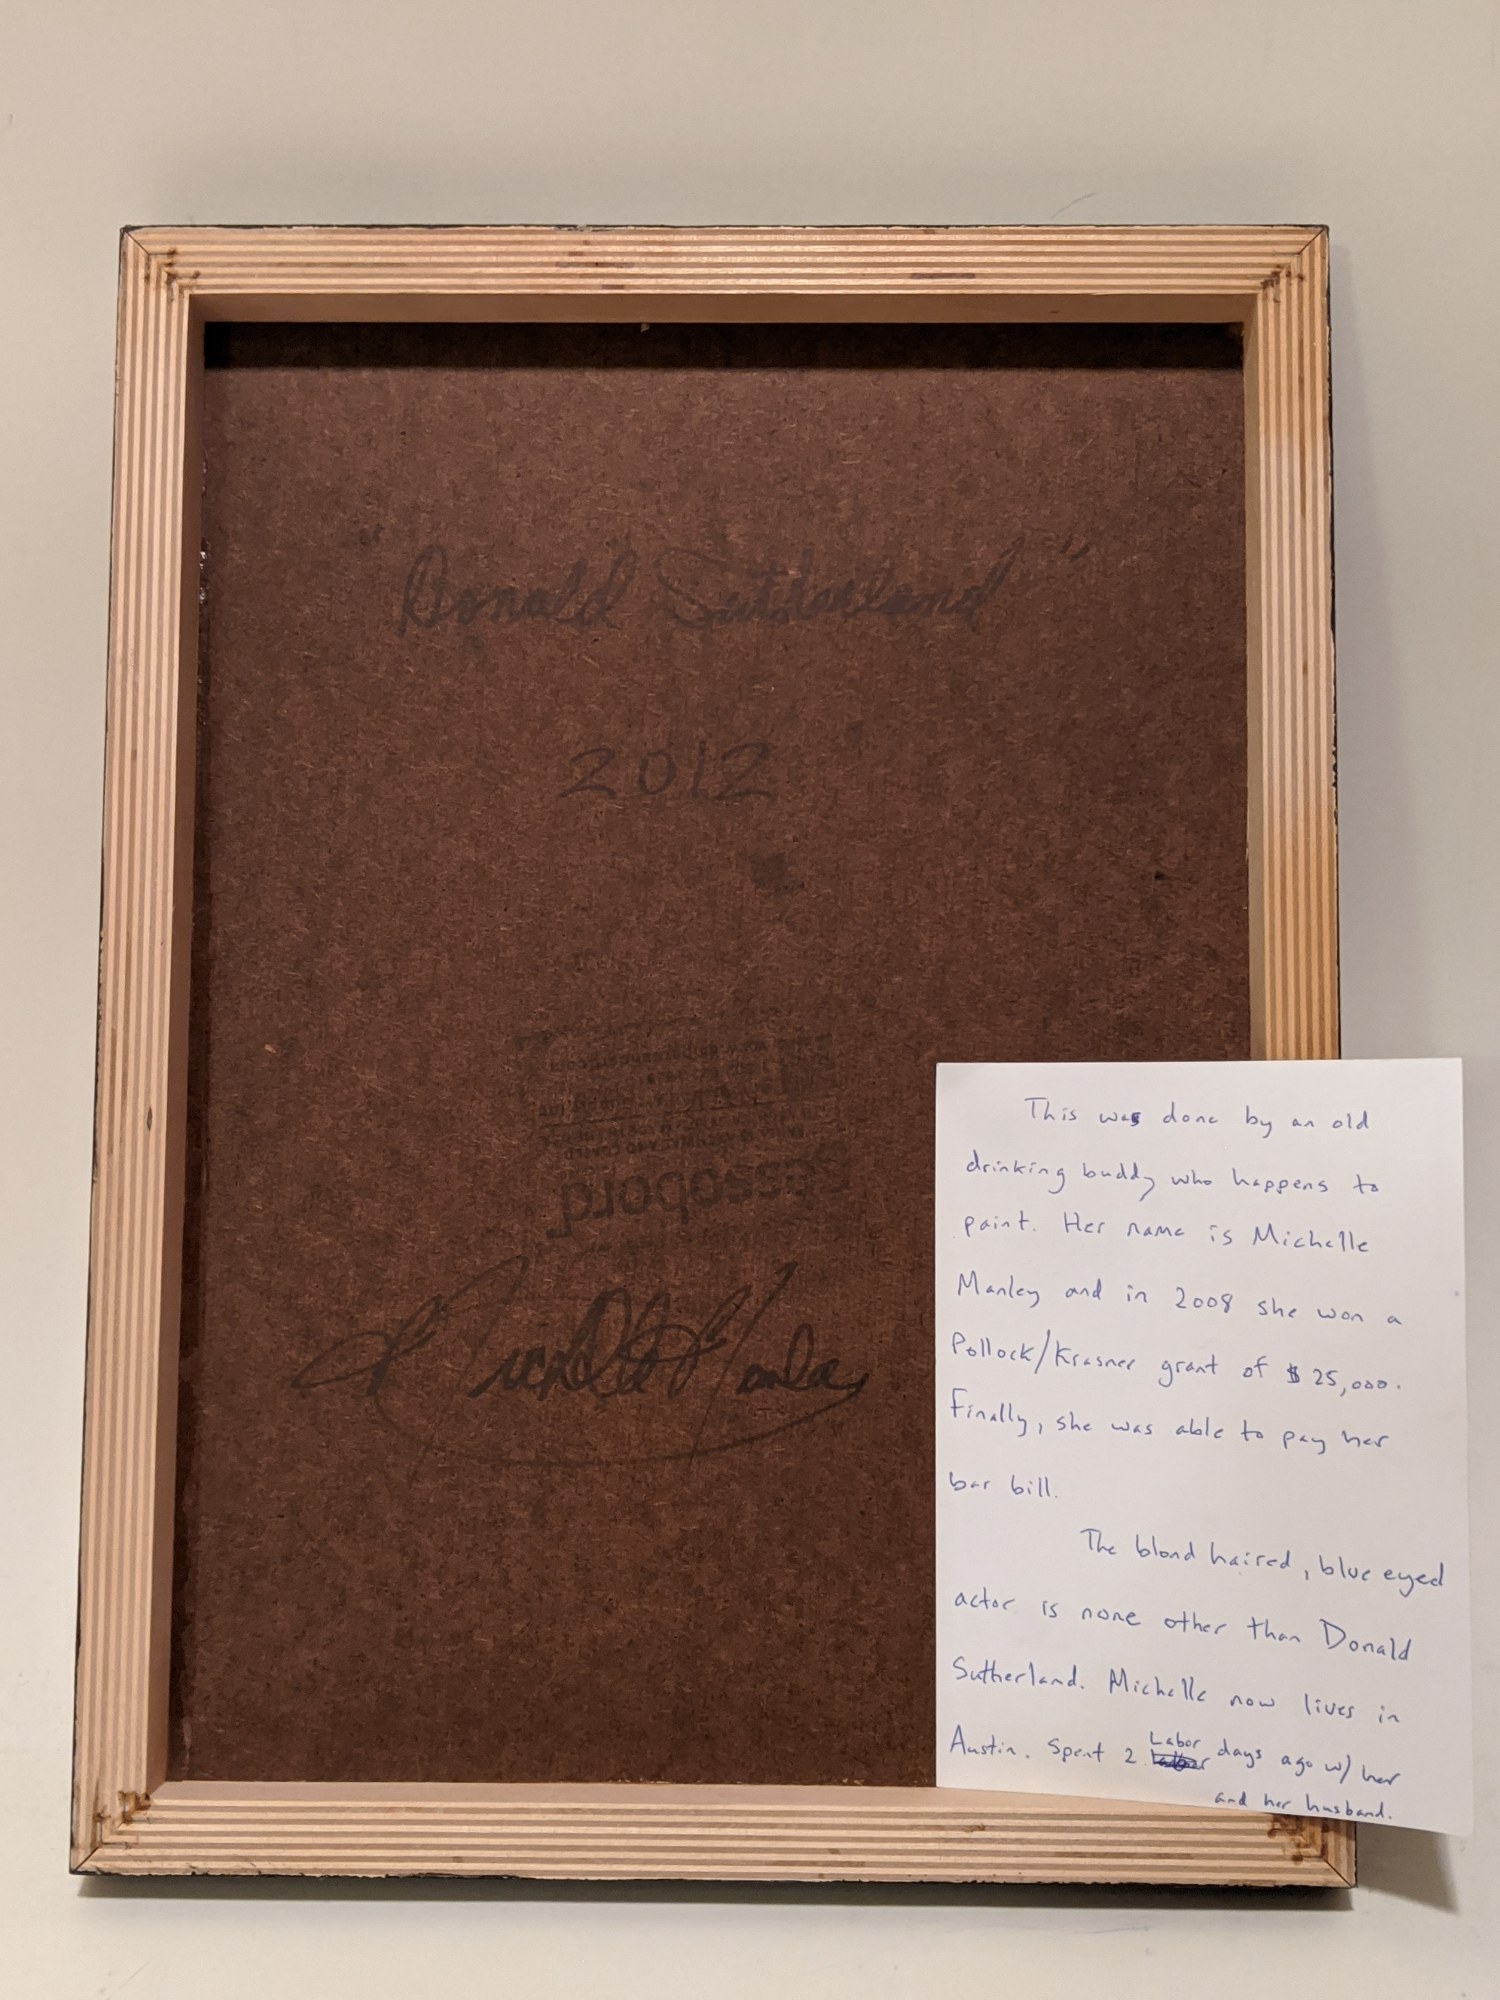 " Donald Sutherland "
2012
gessobord
Michelle Manley
This was done by an old
drinking buddy who happens to
paint. Her name is Michelle
Manley and in 2008 she won a
Pollock/Krasner grant of $25,000.
Finally, she was able to pay her
bar bill.
The blond haired, blue eyed
actor is none other than Donald
Sutherland. Michelle now lives in
Austin. Spent 2 Labor days ago w/ her
and her husband.